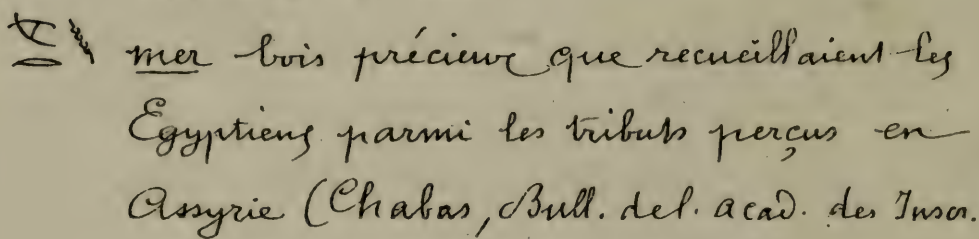 mer bois précieux que recueillaient les
Egyptiens parmi les tributs perçus en
Assyrie (Chabas, Bull. de l. acad. des Inscr.